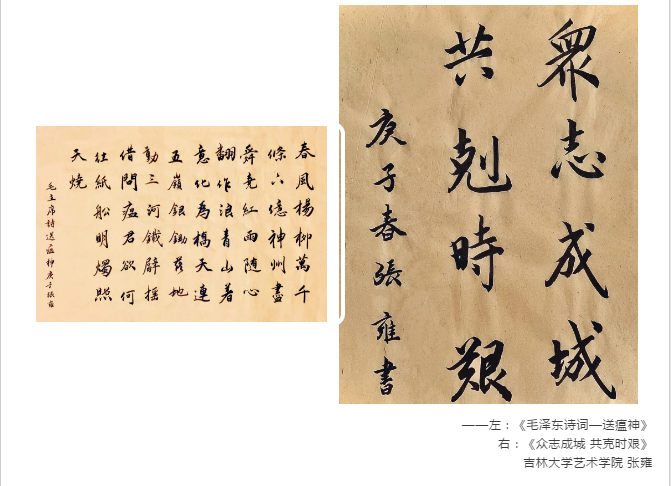 春風楊柳萬千
條六億神州盡
舜堯紅雨隨心
翻作浪青山着
意化為橋天連
五嶺銀鋤落地
動三河鐵臂搖
借問瘟君欲何
往紙船明燭照
天燒
毛主席詩送瘟神庚子張雍
衆志成城
共剋時艱
庚子春張雍書
——左：《毛泽东诗词—送瘟神》
右：《众志成城 共克时艰》
吉林大学艺术学院 张雍